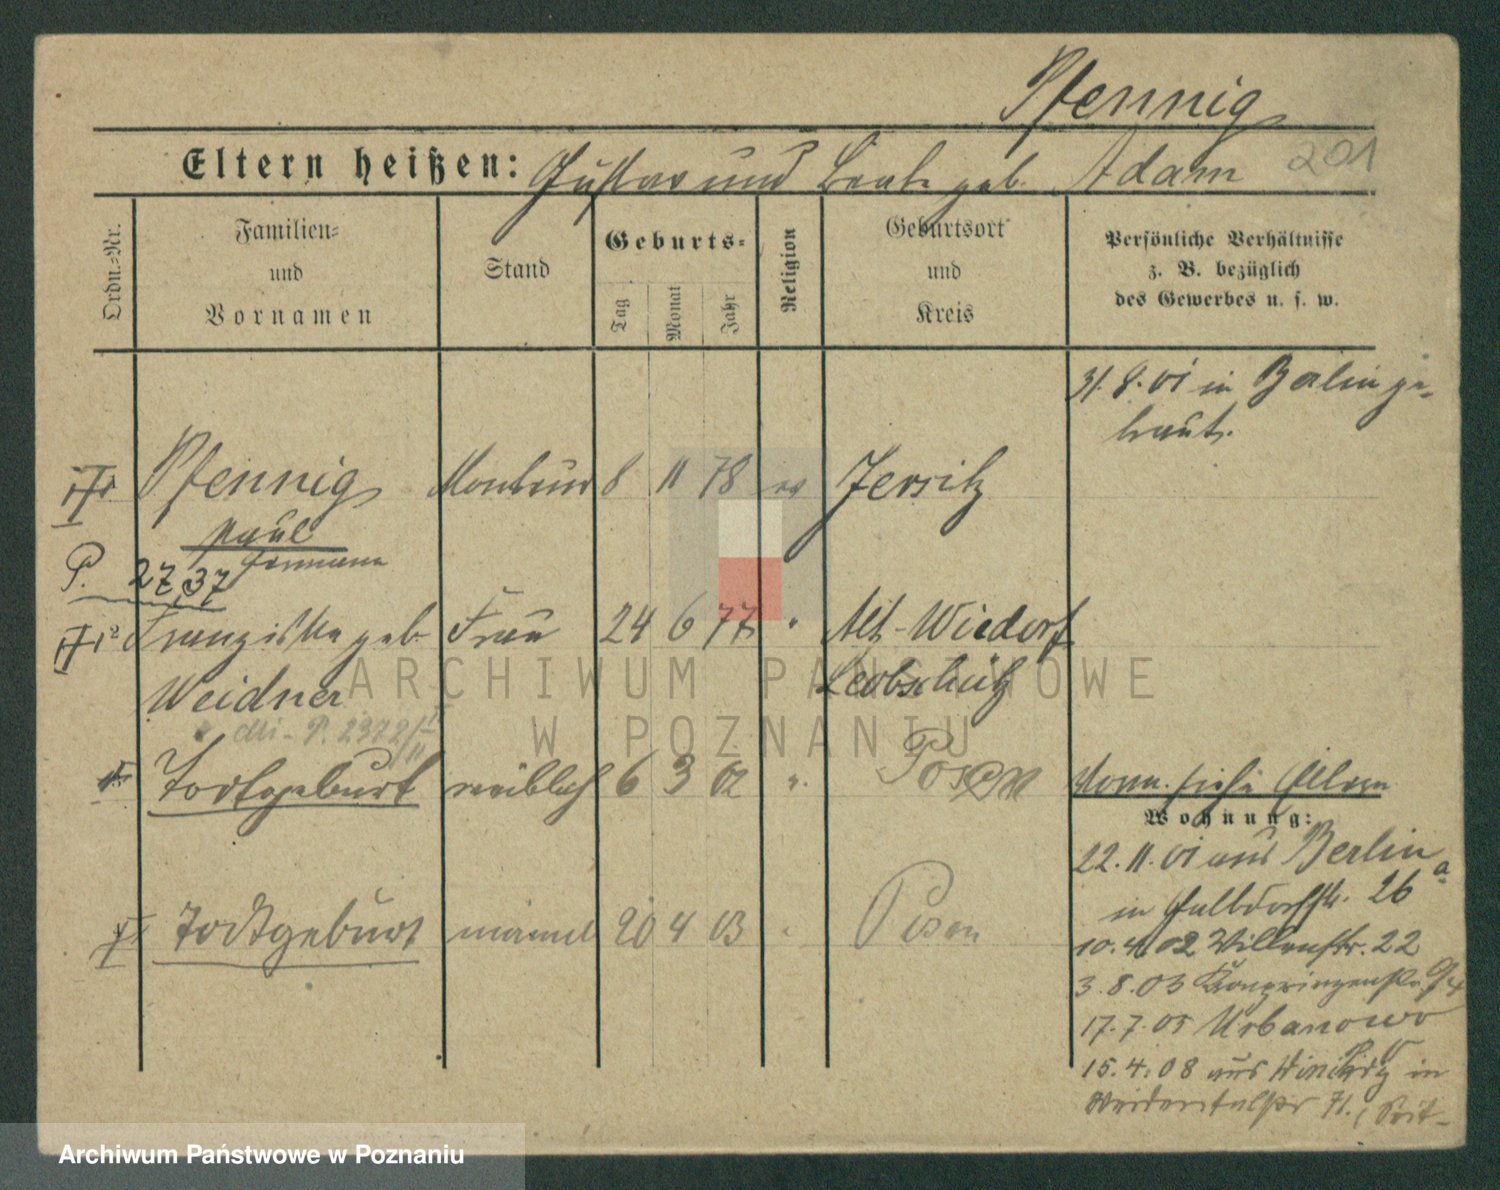 Pfennig
Eltern heißen: Gustav und Beate geb. Adam 201
Ordn.=Nr.
Familien=
und
Vornamen
Stand
Geburts=
Tag
Monat
Jahr
Religion
Geburtsort
und
Kreis
Persönliche Verhältnisse
z. B. bezüglich
des Gewerbes u. s. w.
31.8.01 in Berlin ge-
traut.
Pfennig Monteur 8 11 78 ev Jersitz
Paul
Hermann
P. 2737
2 Franziska geb. Frau 24 6 77 " Alt-Wiedorf
Weidner Leobschütz
P. 2372/
Todtgeburt weiblich 6 3 02 " Posen
siehe Eltern
Wohnung:
22.11.01 aus Berlin
in 26a
Todtgeburt männl 20 4 03 " Posen
10.4.02 22
3.8.03 Kronprinzenstr. 94
17.7.05 Urbanowo
15.4.08 aus in
71.
ARCHIWUM PAŃSTWOWE
W POZNANIU
Archiwum Państwowe w Poznaniu